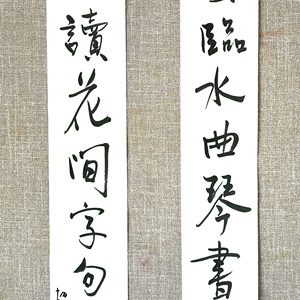 臨水曲琴書
讀花間字句